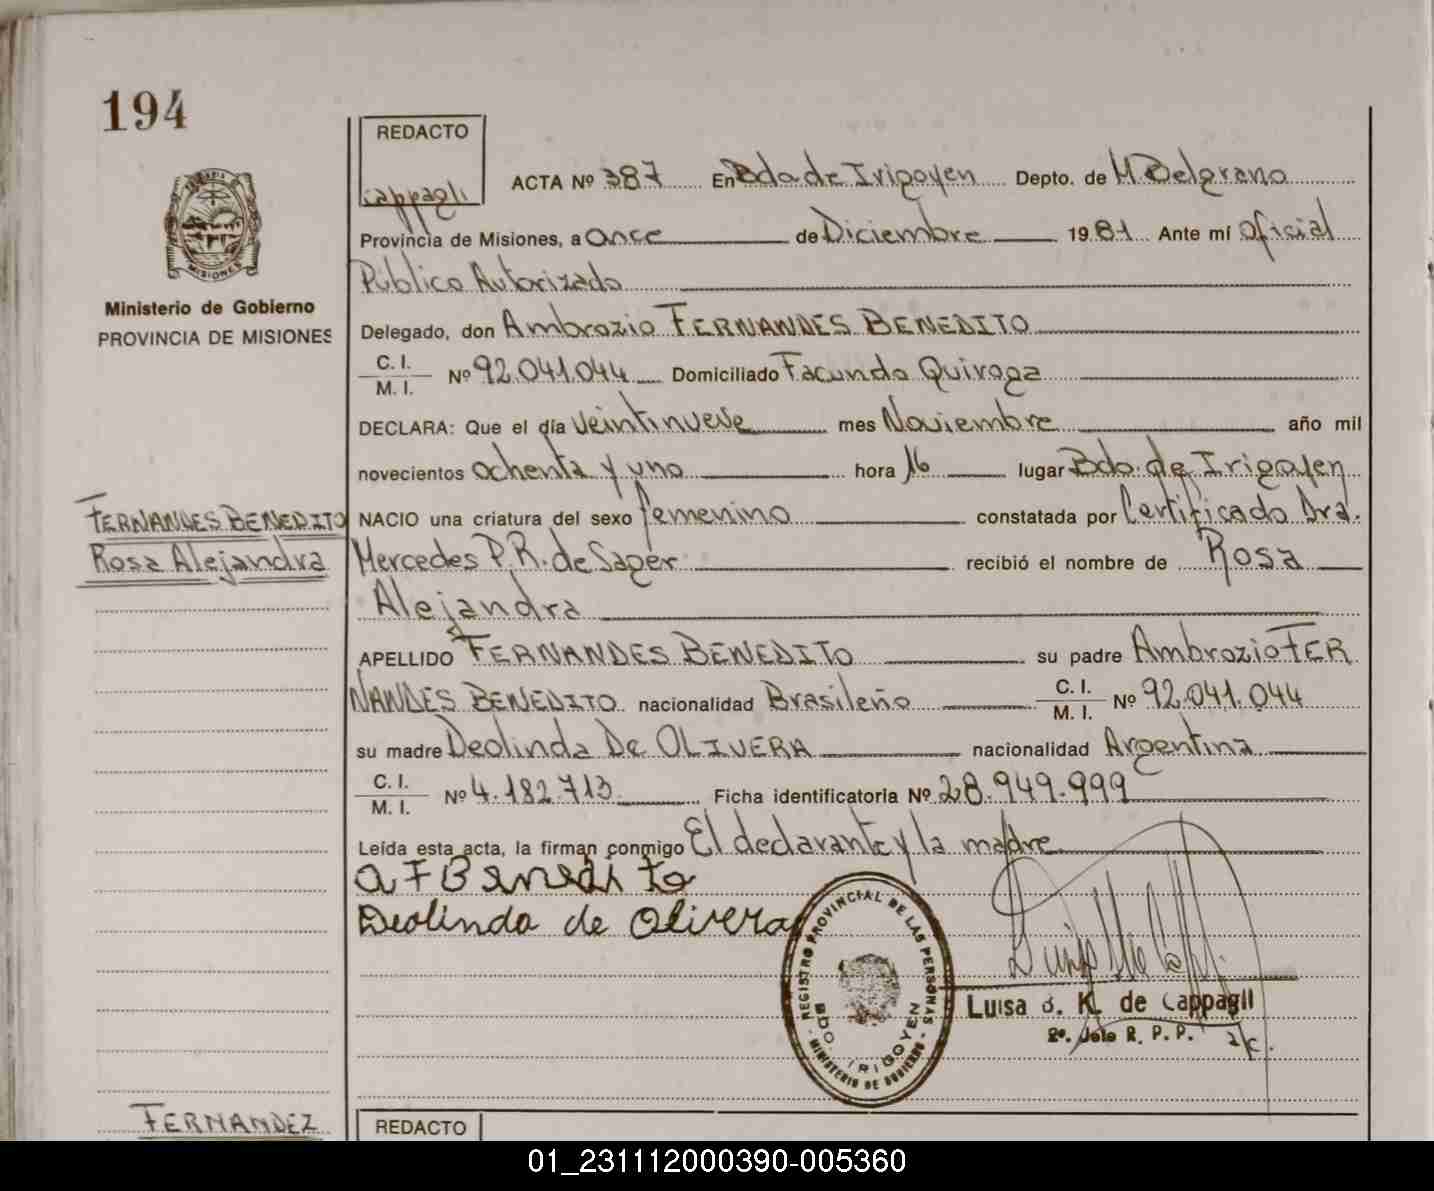 194
REDACTO
Cappagli
ACTA Nº 387 En Bdo de Irigoyen Depto. de M. Belgrano
Provincia de Misiones, a once de Diciembre 1981 Ante mí Oficial
Público Autorizado
MISIONES
Ministerio de Gobierno
PROVINCIA DE MISIONES
Delegado, don Ambrozio FERNANDES BENEDITO
C. I.
M. I. Nº 92.041.044 Domiciliado Facundo Quiroga
DECLARA: Que el día veintinueve mes Noviembre año mil
novecientos ochenta y uno hora 16 lugar Bdo. de Irigoyen
FERNANDES BENEDITO
Rosa Alejandra
NACIO una criatura del sexo femenino constatada por Certificado Dra.
Mercedes P. R. de Sager recibió el nombre de Rosa
Alejandra
APELLIDO FERNANDES BENEDITO su padre Ambrozio FER
NANDES BENEDITO nacionalidad Brasileño C. I.
M. I. Nº 92.041.044
su madre Deolinda De OLIVERA nacionalidad Argentina
C. I.
M. I. Nº 4.182.713 Ficha identificatoria Nº 28.949.999
Leída esta acta, la firman conmigo El declarante y la madre
A F Benedito
Deolinda de Olivera
REGISTRO PROVINCIAL DE LAS PERSONAS
BDO. IRIGOYEN
- MINISTERIO DE GOBIERNO -
Luisa K. de Cappagli
2º. Jefe R. P. P. a/c.
FERNANDEZ
REDACTO
01_231112000390-005360